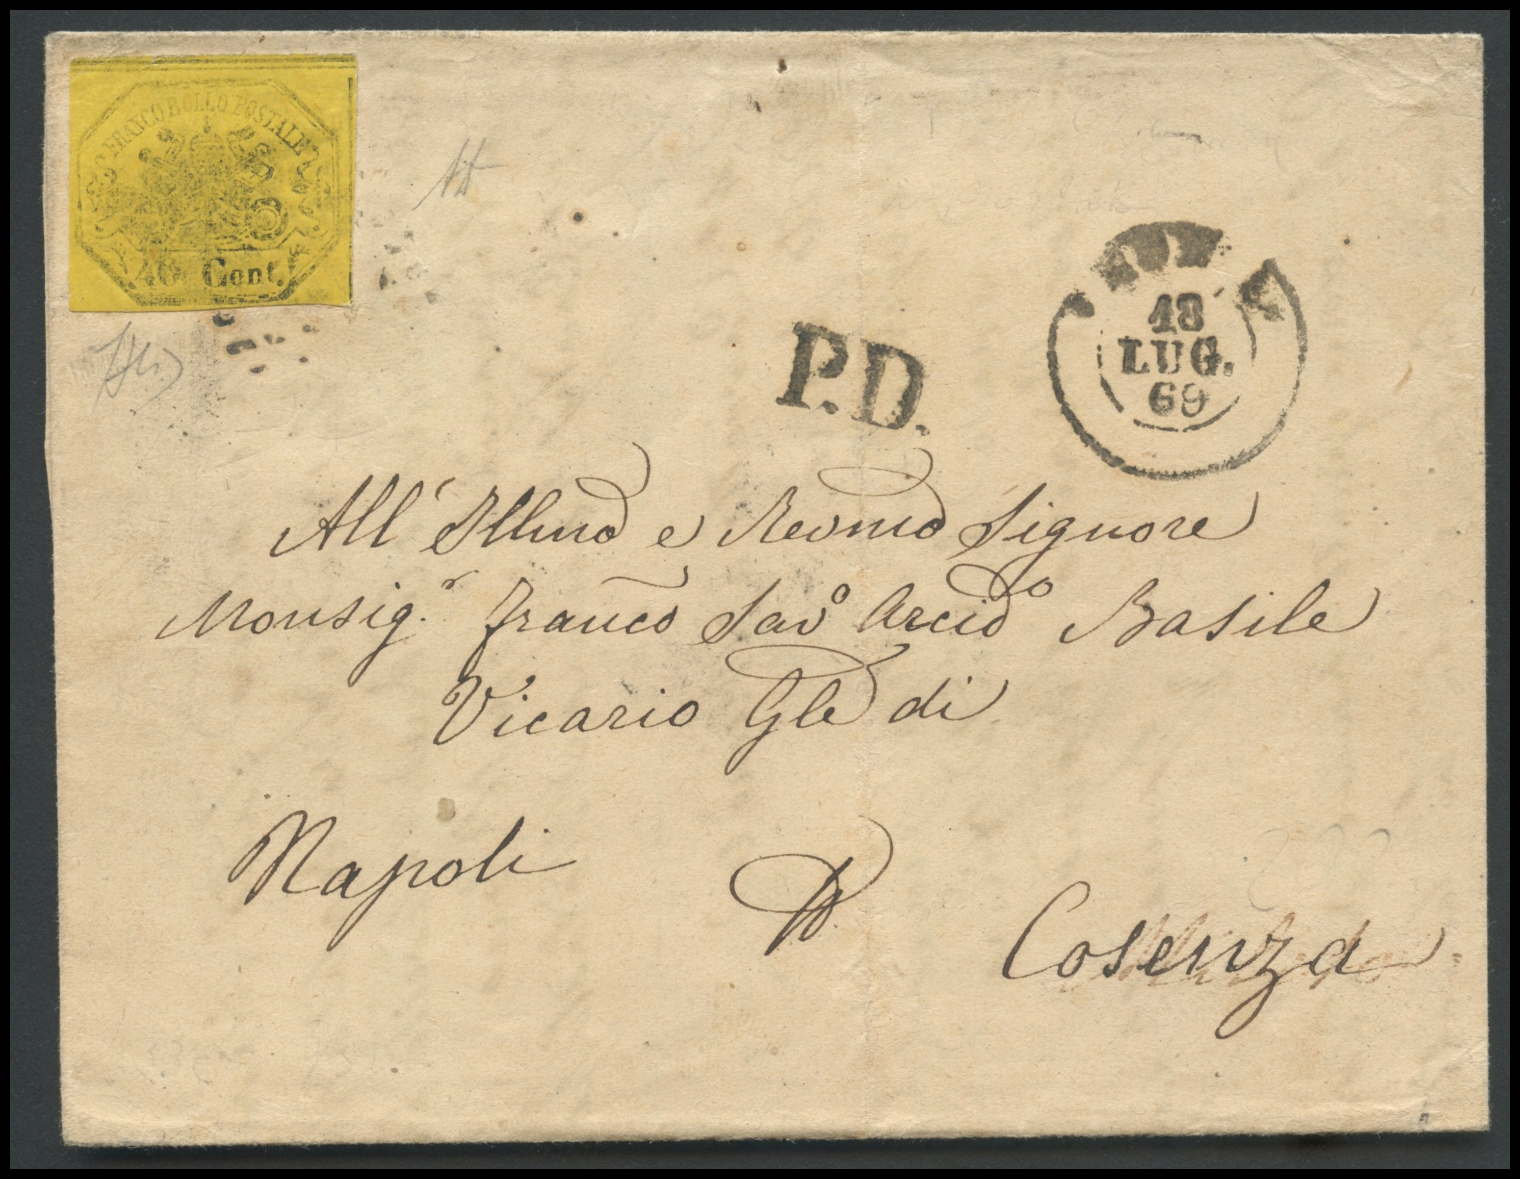 FRANCO BOLLO POSTALE
40 Cent.
P.D.
18
LUG.
69
All' Illmo e Revmo Signore
Monsig.r Franco Savo Arcido Basile
Vicario Gle di
Napoli
Cosenza